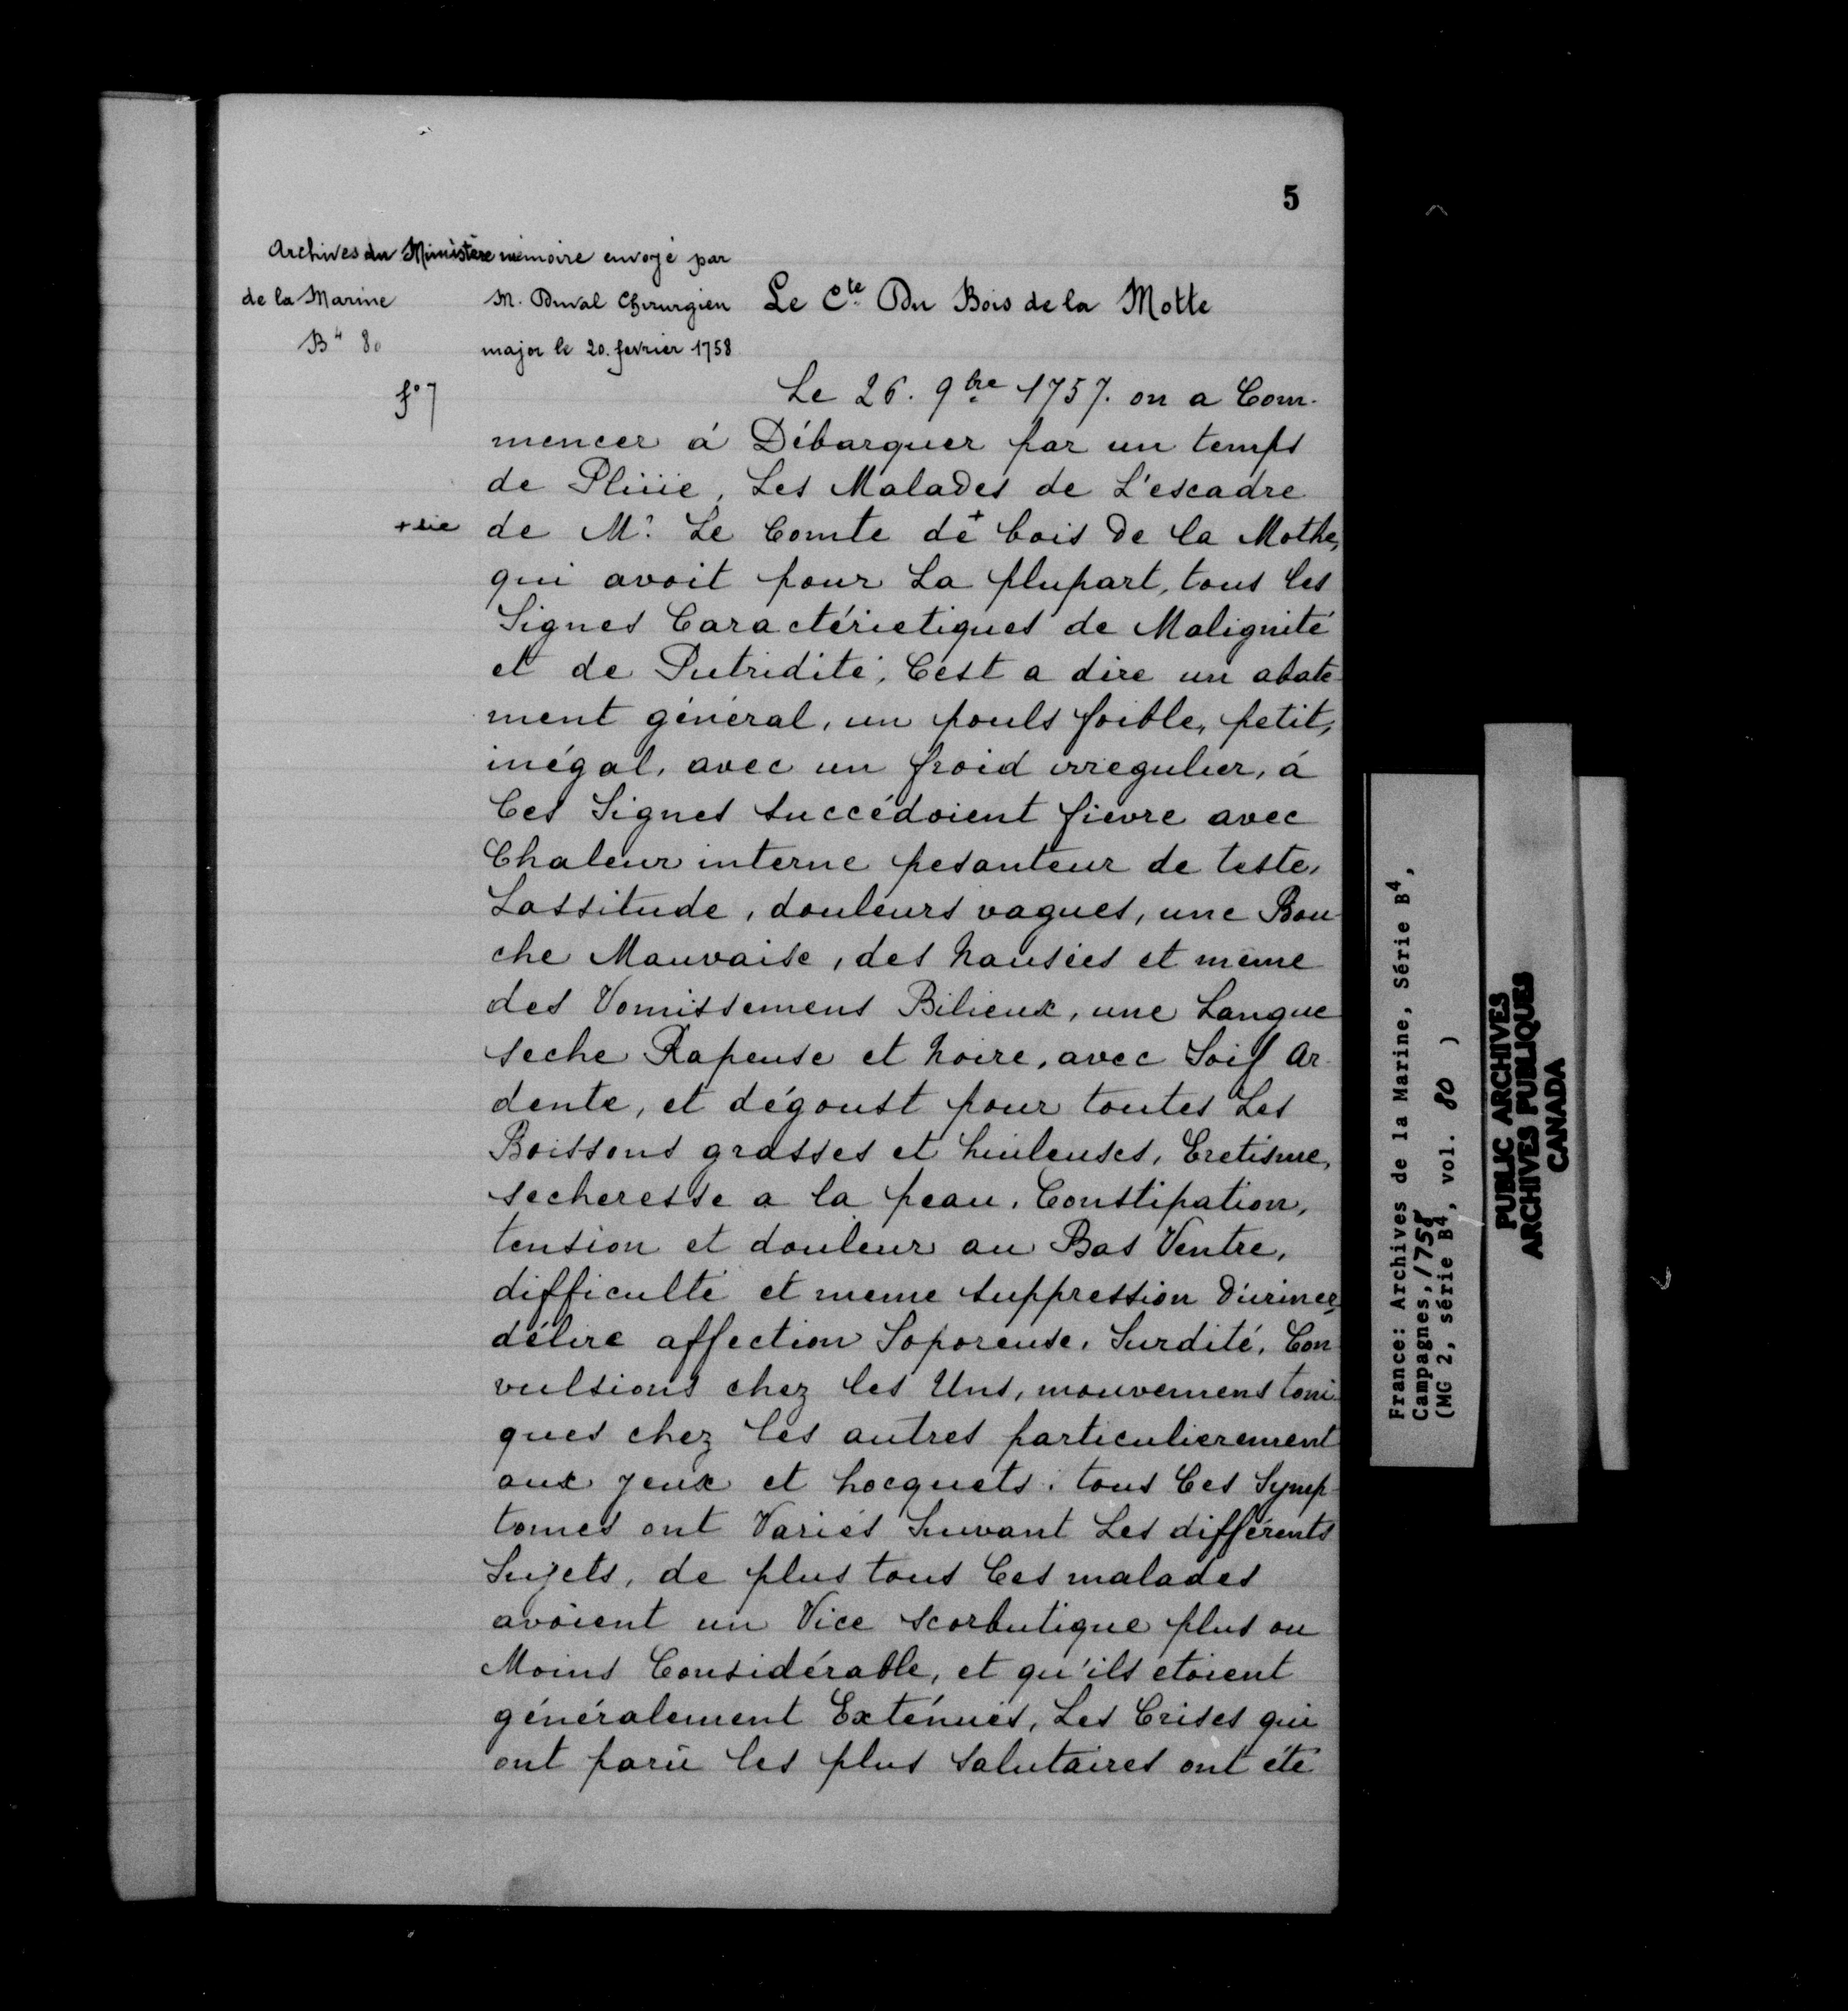 5
Archives du Ministère
de la Marine
B⁴ 80
mémoire envoyé par
M. Duval Chirurgien
major le 20. fevrier 1758
Le Cte. Du Bois de la Motte
f° 7
Le 26. 9bre 1757. on a Com-
mencer à Débarquer par un temps
de Pluïe, Les Malades de L'escadre
+ sic
de Mr. Le Comte de + bois De la Mothe,
qui avoit pour La plupart, tous les
Signes Caractérietiques de Malignité
et de Putridité; C'est a dire un abate-
ment général, un pouls foible, petit,
inégal, avec un froid irregulier, à
Ces Signes succédoient fievre avec
Chaleur interne pesanteur de teste,
Lassitude, douleurs vagues, une Bou-
che Mauvaise, des nausées et même
des Vomissemens Bilieux, une Langue
seche Rapeuse et noire, avec Soif Ar-
dente, et dégoust pour toutes Les
Boissons grasses et huileuses, Eretisme,
secheresse a la peau, Constipation,
tension et douleur au Bas Ventre,
difficulté et meme suppression D'uriner,
délire affection Soporeuse, Surdité, Con-
vulsions chez les Uns, mouvemens toni-
ques chez les autres particulierement
aux yeux et hocquets; tous Ces Symp-
tomes ont Variés Suivant Les différents
Sujets, de plus tous Ces malades
avoient un Vice scorbutique plus ou
Moins Considérable, et qu'ils etoient
généralement Exténués, Les Crises qui
ont parû les plus salutaires ont été
France: Archives de la Marine, Série B⁴,
Campagnes, 1758
(MG 2, série B⁴, vol. 80 )
PUBLIC ARCHIVES
ARCHIVES PUBLIQUES
CANADA